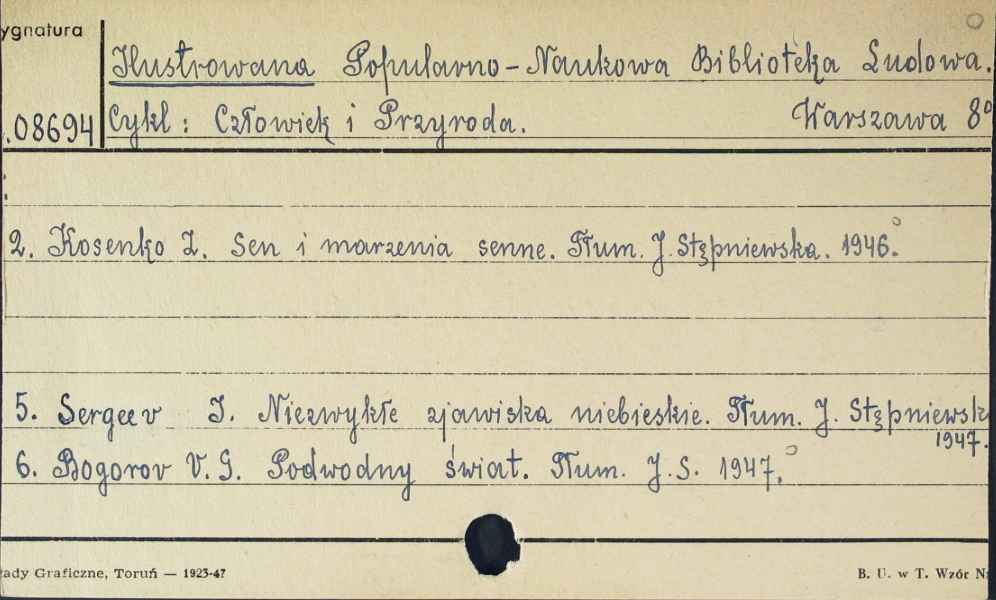 ygnatura
Ilustrowana Popularno-Naukowa Biblioteka Ludowa.
.08694 Cykl: Człowiek i Przyroda. Warszawa 8º
2. Kosenko Z. Sen i marzenia senne. Tłum. J. Stępniewska. 1946.
5. Sergeev I. Niezwykłe zjawiska niebieskie. Tłum. J. Stępniewsk
1947.
6. Bogorov V. G. Podwodny świat. Tłum. J. S. 1947.
łady Graficzne, Toruń — 1923-47
B. U. w T. Wzór N